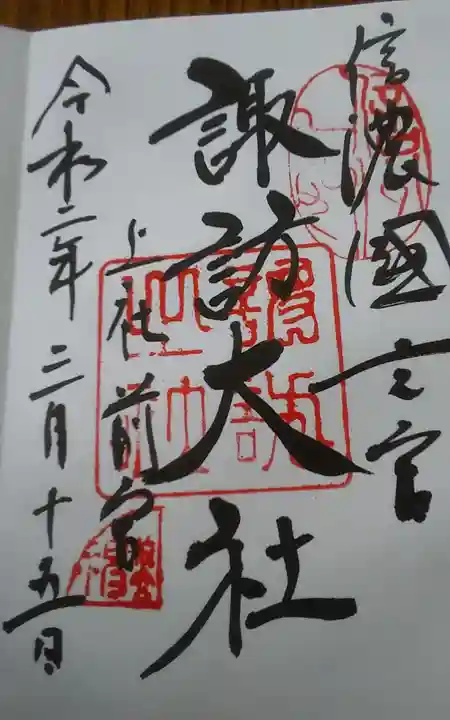 信濃國一之宮
諏訪大社
上社前宮
令和二年三月十五日
諏訪大社